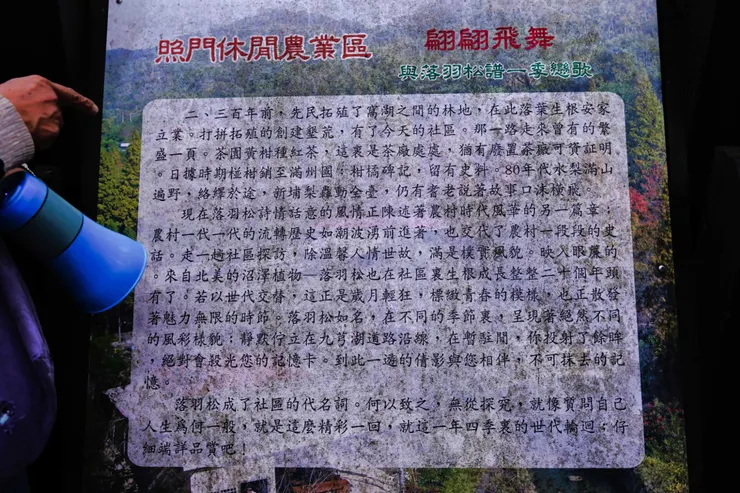 照門休閒農業區
翩翩飛舞
與落羽松譜一季戀歌
二、三百年前，先民拓殖了窩湖之間的林地，在此落葉生根安家
立業。打拚拓殖的創建墾荒，有了今天的社區。那一路走來曾有的繁
盛一頁。茶園黃柑種紅茶，這裏是茶廠處處，猶有廢置茶廠可資証明
。日據時期椪柑銷至滿州國，柑橘碑記，留有史料。80年代水梨滿山
遍野，絡繹於途，新埔梨轟動全臺，仍有耆老說著故事口沫橫飛。
現在落羽松詩情話意的風情正陳述著農村時代風華的另一篇章；
農村一代一代的流轉歷史如潮波湧前進著，也交代了農村一段段的史
話。走一趟社區探訪，除溫馨人情世故，滿是樸實風貌。映入眼簾的
。來自北美的沼澤植物—落羽松也在社區裏生根成長整整二十個年頭
有了。若以世代交替，這正是歲月輕狂，標緻青春的模樣，也正散發
著魅力無限的時節。落羽松如名，在不同的季節裏，呈現著絕然不同
的風彩樣貌；靜默佇立在九芎湖道路沿線，在暫駐間，你投射了餘眸
，絕對會殺光您的記憶卡。到此一遊的倩影與您相伴，不可抹去的記
憶。
落羽松成了社區的代名詞。何以致之，無從探究，就像質問自己
人生為何一般，就是這麼精彩一回，就這一年四季裏的世代輪迴；仔
細端詳品賞吧！